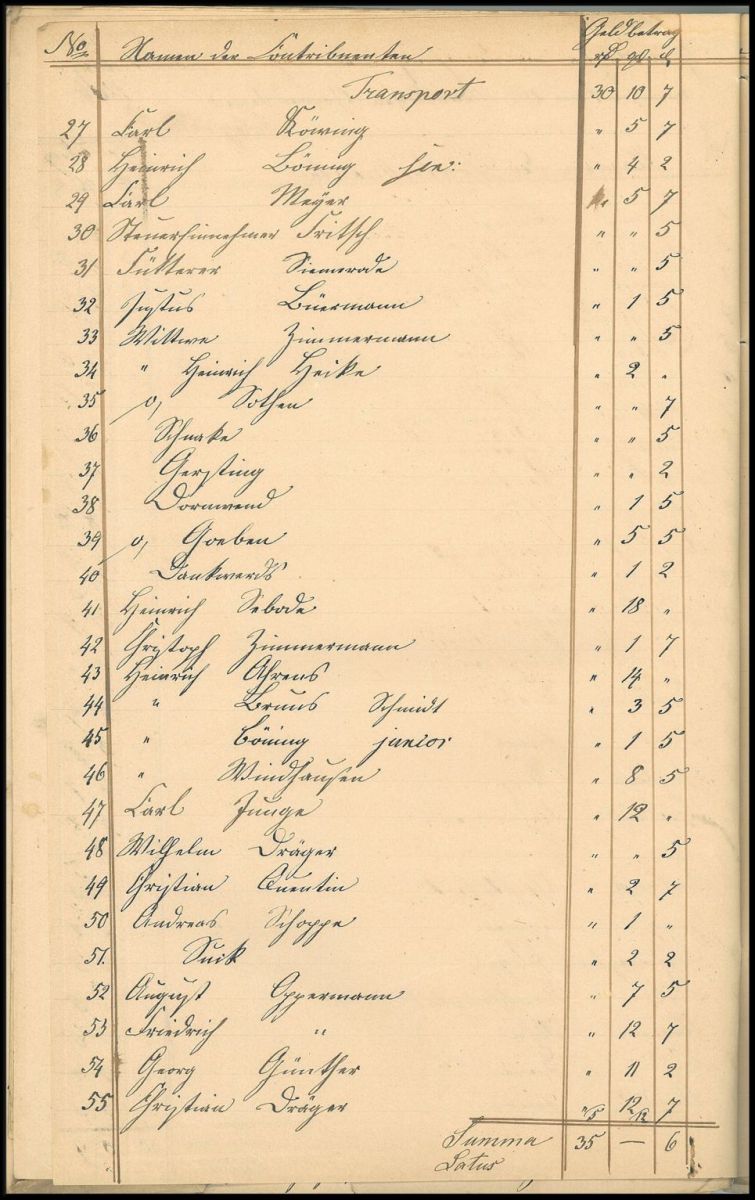 No. Namen der Contribuenten Geldbetrag
rℓ gl d
Transport 30 10 7
27 Carl Röving " 5 7
28 Heinrich Böning sen: " 4 2
29 Carl Meyer " 5 7
30 Steuereinnehmer Fritsch " " 5
31 Fütterer Siemerode " " 5
32 Justus Büermann " 1 5
33 Wittwe Zimmermann " " 5
34 " Heinrich Heike " 2 "
35 v, Sothen " " 7
36 Schnake " " 5
37 Gersting " " 2
38 Dornwend " 1 5
39 v, Goeben " 5 5
40 Dankwerds " 1 2
41 Heinrich Sebode " 18 "
42 Christoph Zimmermann " 1 7
43 Heinrich Ahrens " 14 "
44 " Bruns Schmidt " 3 5
45 " Böning junior " 1 5
46 " Windhausen " 8 5
47 Carl Junge " 12 "
48 Wilhelm Dräger " " 5
49 Christian Quentin " 2 7
50 Andreas Schoppe " 1 "
51. Suik " 2 2
52 August Oppermann " 7 5
53 Friedrich " " 12 7
54 Georg Günther " 11 2
55 Christian Dräger " 12 7
Summa 35 — 6
Latus